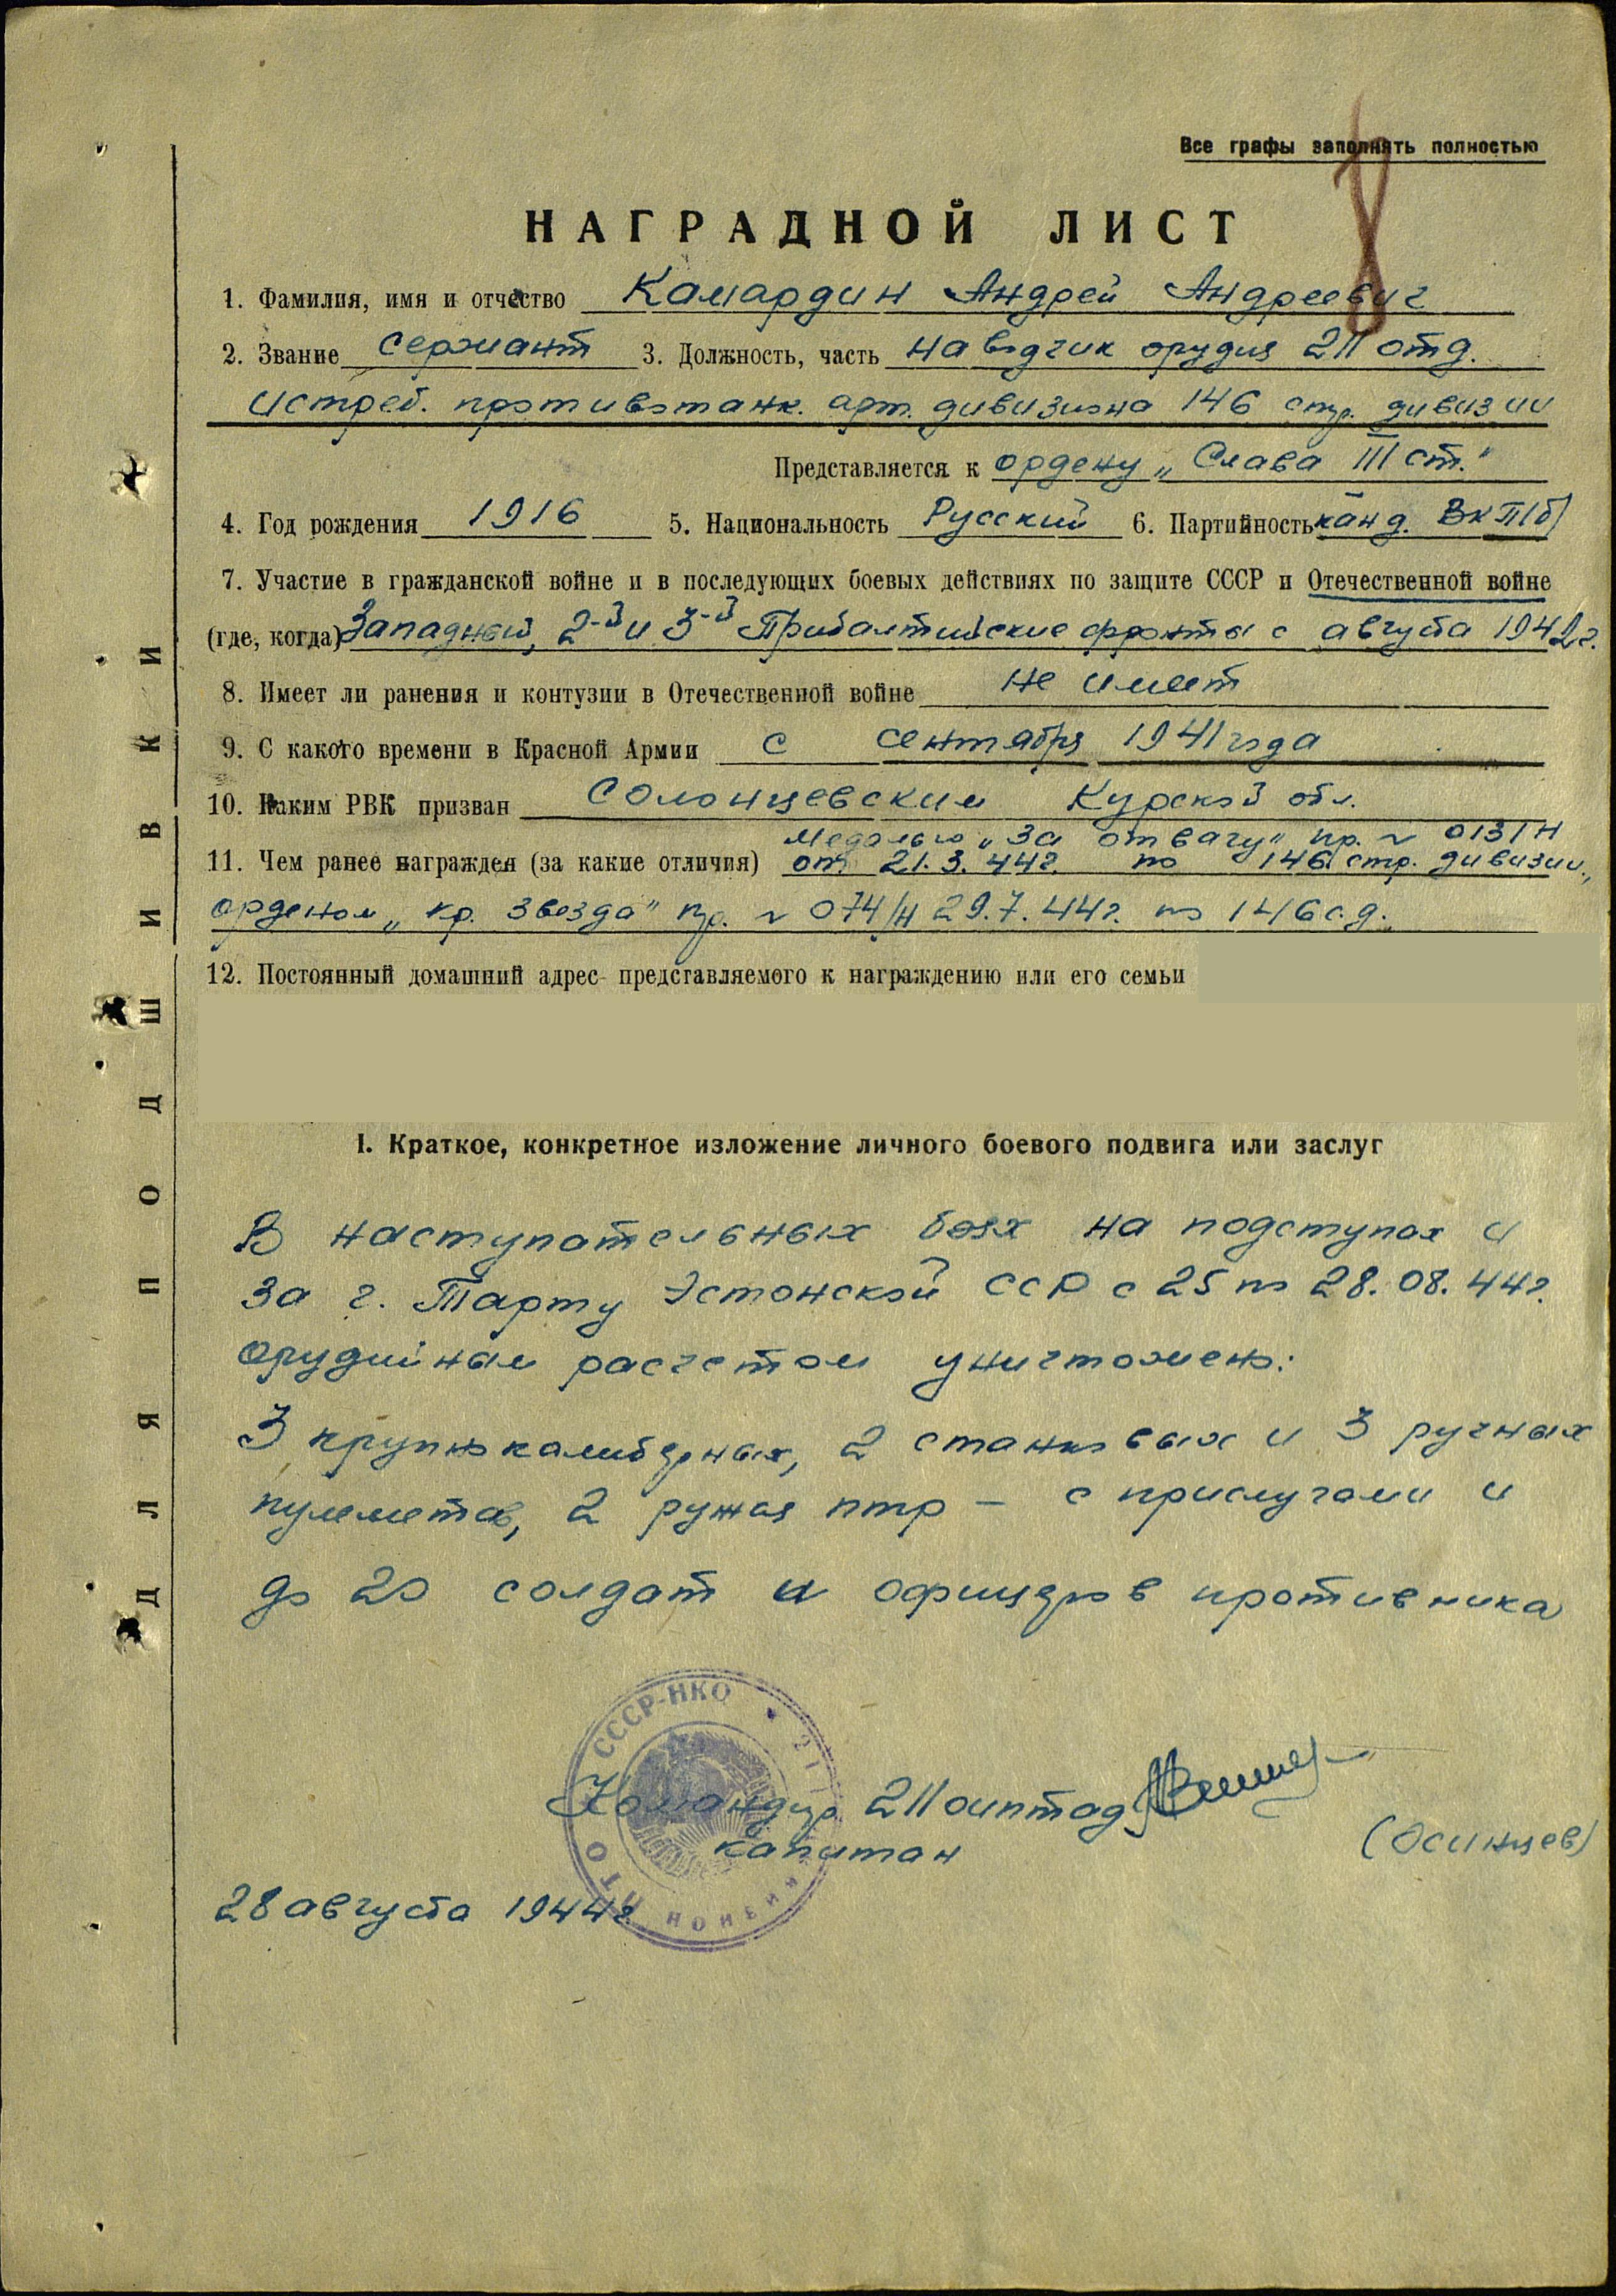 Все графы заполнять полностью
НАГРАДНОЙ ЛИСТ
1. Фамилия, имя и отчество Камардин Андрей Андреевич
2. Звание сержант 3. Должность, часть наводчик орудия 211 отд.
истреб. противотанк. арт. дивизиона 146 стр. дивизии
Представляется к ордену „Слава III ст."
4. Год рождения 1916 5. Национальность Русский 6. Партийность канд. ВКП(б)
7. Участие в гражданской войне и в последующих боевых действиях по защите СССР и Отечественной войне
(где, когда) Западный, 2-й и 3-й Прибалтийские фронты с августа 1942г.
8. Имеет ли ранения и контузии в Отечественной войне не имеет
9. С какого времени в Красной Армии с сентября 1941 года
10. Каким РВК призван Солонцевским Курской обл.
Медалью „За отвагу" пр. № 013/н
11. Чем ранее награжден (за какие отличия) от 21.3.44г. по 146 стр. дивизии.,
орденом „Кр. Звезда" пр. № 074/н 29.7.44г. по 146 с.д.
12. Постоянный домашний адрес представляемого к награждению или его семьи
I. Краткое, конкретное изложение личного боевого подвига или заслуг
В наступательных боях на подступах и
за г. Тарту Эстонской ССР с 25 по 28.08.44г.
орудийным расчетом уничтожено:
3 крупнокалиберных, 2 станковых и 3 ручных
пулеметов, 2 ружья птр – с прислугами и
до 20 солдат и офицеров противника
СССР-НКО
Командир 211 оиптад
капитан
(Осинцев)
28 августа 1944г
ДЛЯ ПОДШИВКИ